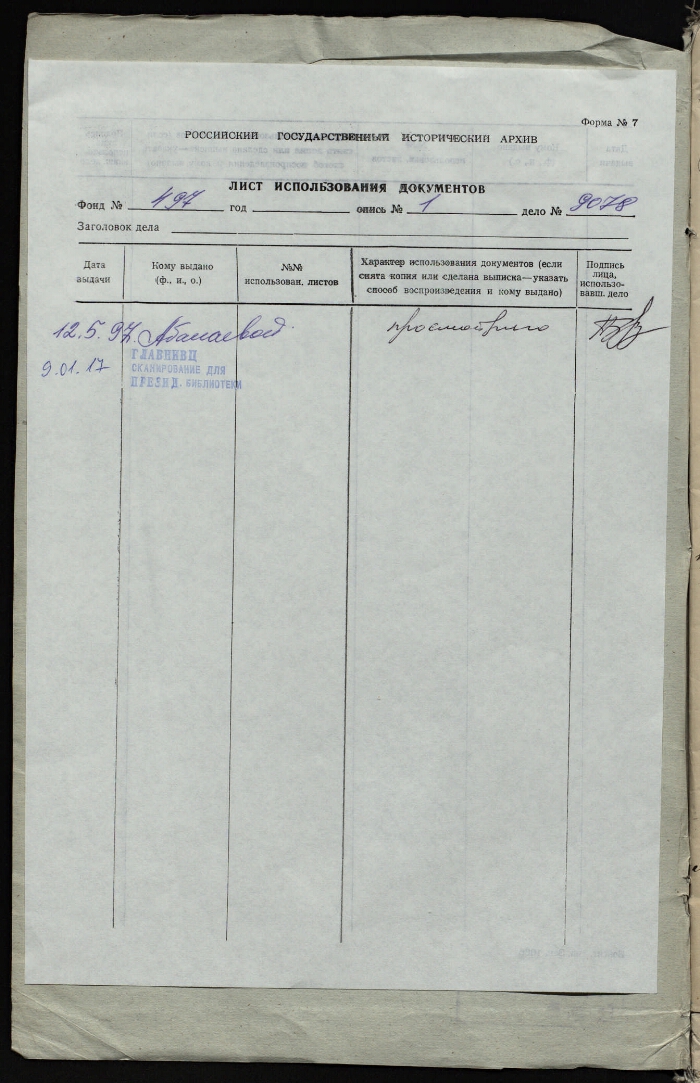 Форма № 7
РОССИЙСКИЙ ГОСУДАРСТВЕННЫЙ ИСТОРИЧЕСКИЙ АРХИВ
ЛИСТ ИСПОЛЬЗОВАНИЯ ДОКУМЕНТОВ
Фонд № 497 год опись № 1 дело № 9078
Заголовок дела
Дата выдачи
Кому выдано (ф., и., о.)
№№ использован. листов
Характер использования документов (если снята копия или сделана выписка—указать способ воспроизведения и кому выдано)
Подпись лица, использо- вавш. дело
12.5.97. Абанаевой просмотрено
9.01.17
ГЛАВНИВЦ
СКАНИРОВАНИЕ ДЛЯ
ПРЕЗИД. БИБЛИОТЕКИ